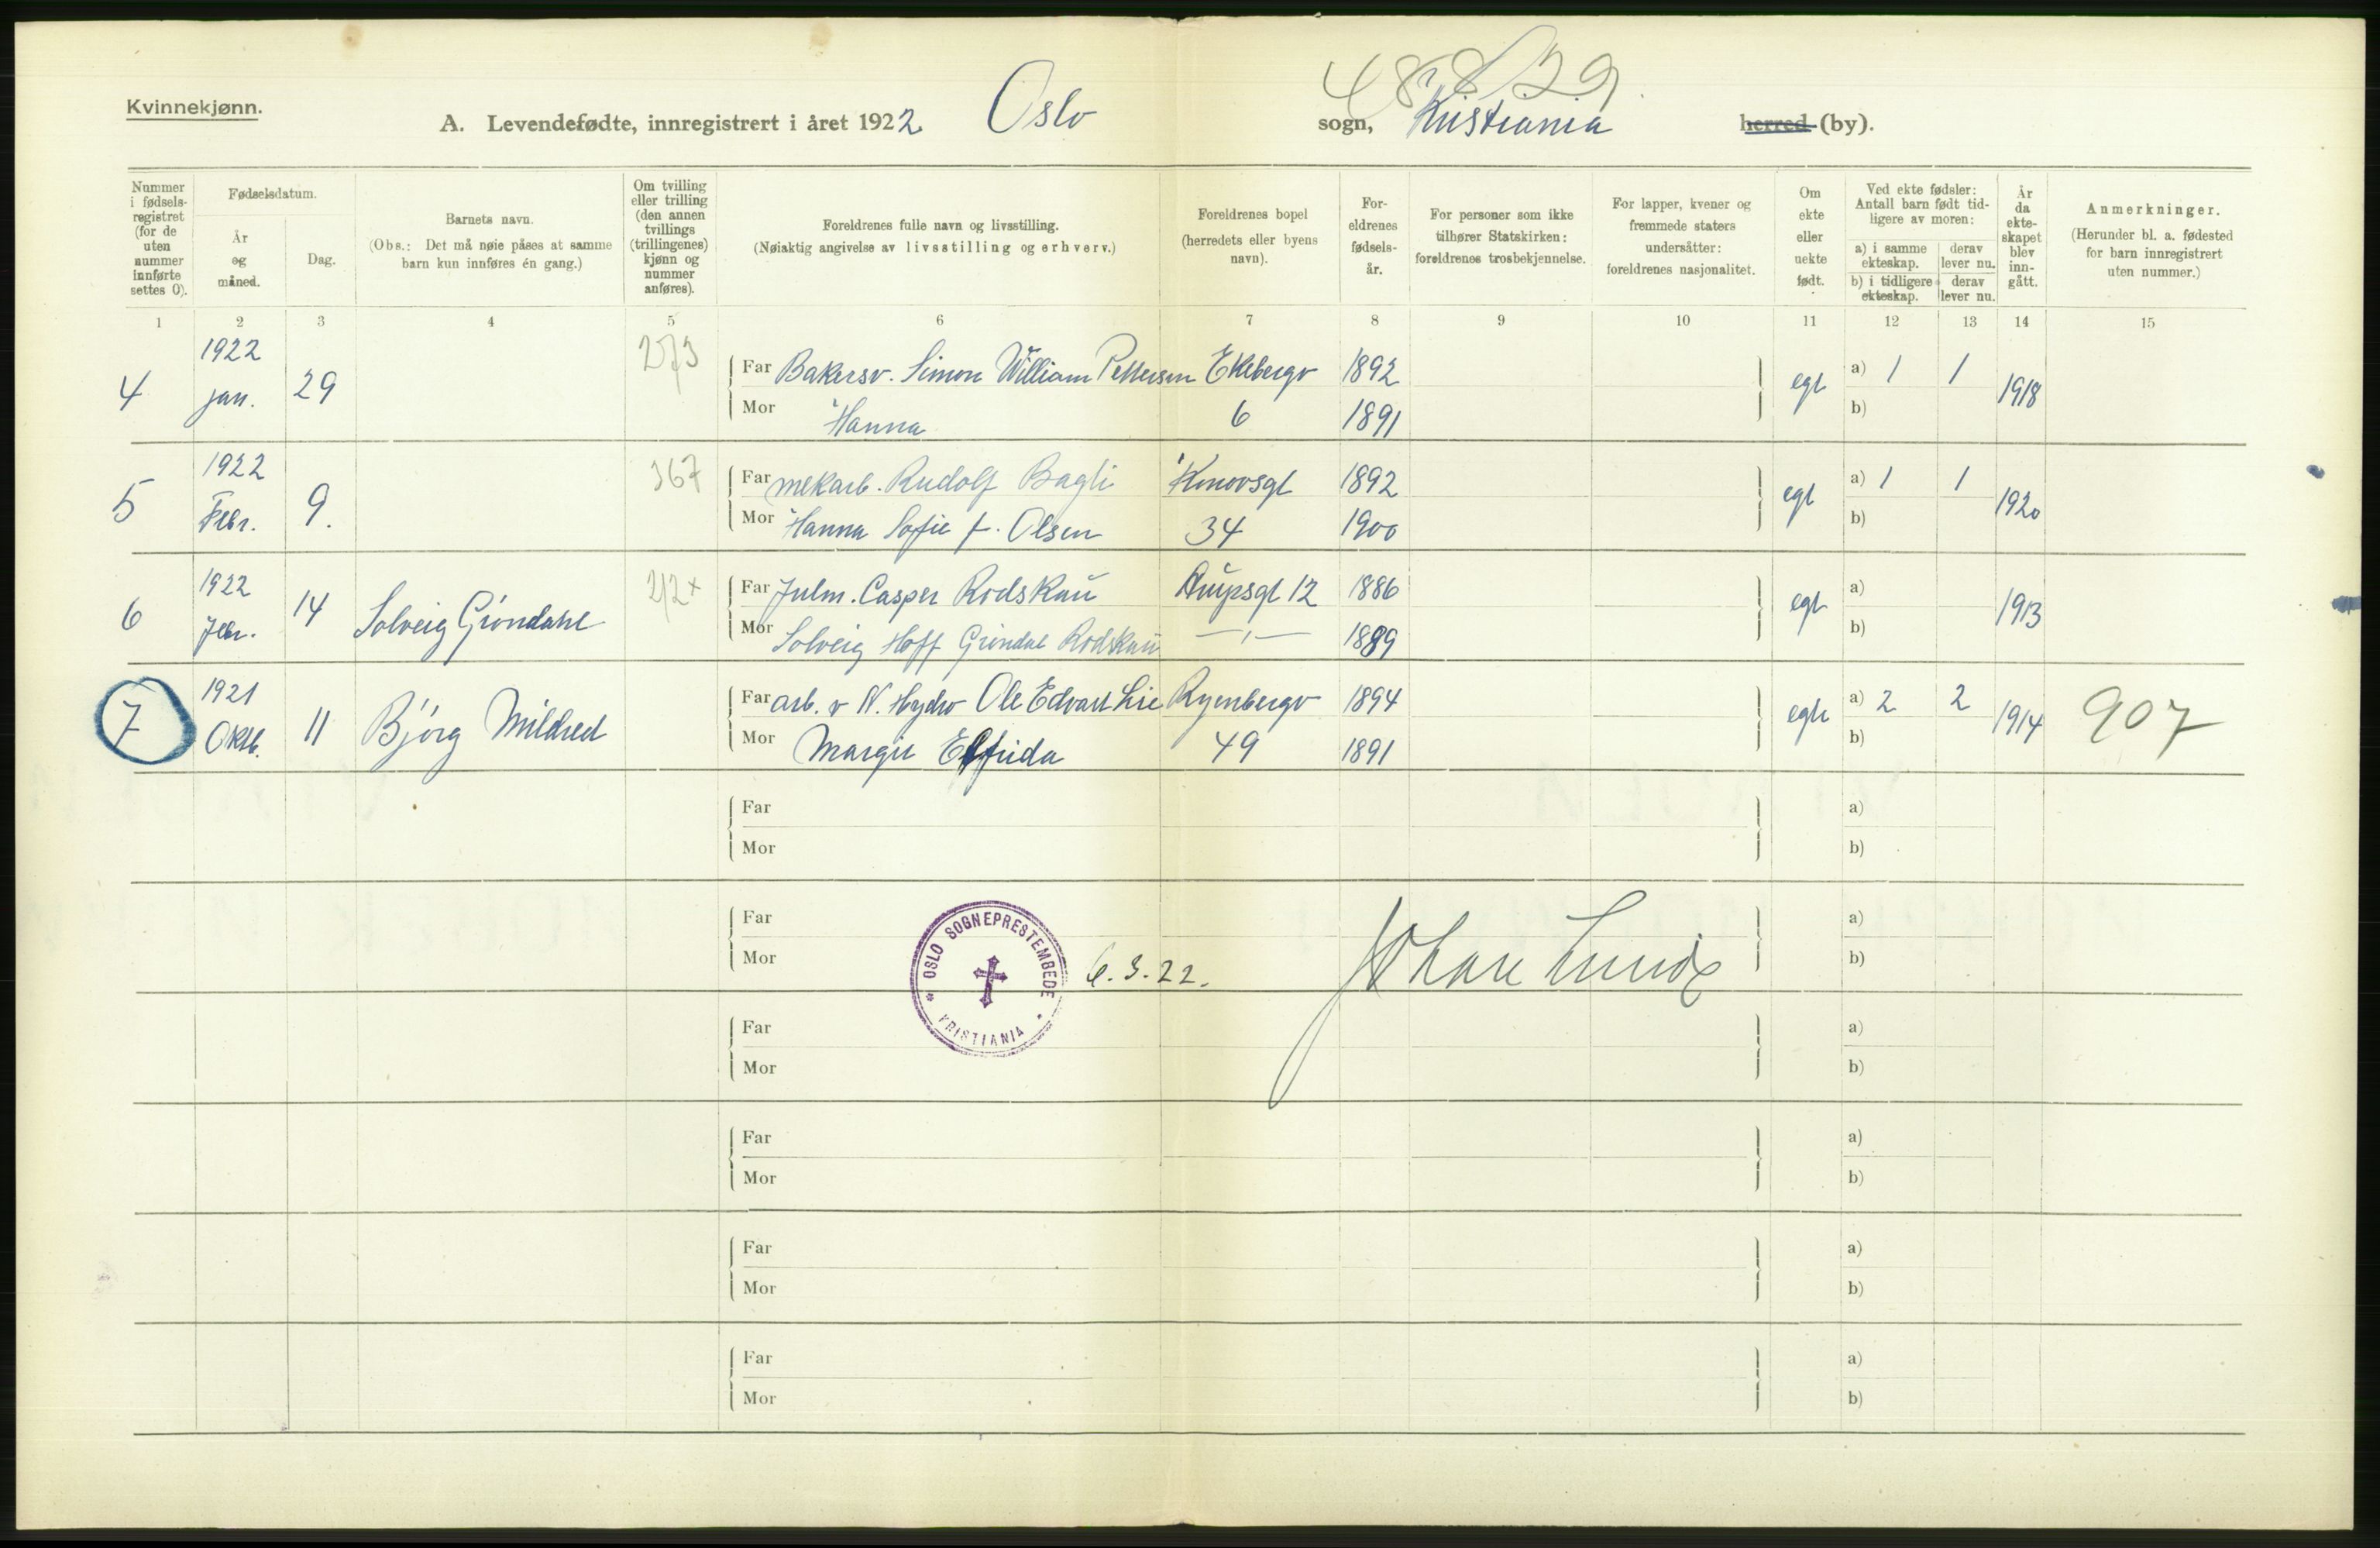 48829
Kvinnekjønn.
A. Levendefødte, innregistrert i året 1922. Oslo sogn, Kristiania herred (by).
Nummer i fødselsregistret (for de uten nummer innførte settes 0).
Fødselsdatum.
År og måned.
Dag.
Barnets navn.
(Obs.: Det må nøie påses at samme barn kun innføres én gang.)
Om tvilling eller trilling (den annen tvillings (trillingenes) kjønn og nummer anføres).
Foreldrenes fulle navn og livsstilling.
(Nøiaktig angivelse av livsstilling og erhverv.)
Foreldrenes bopel (herredets eller byens navn).
For-eldrenes fødsels-år.
For personer som ikke tilhører Statskirken: foreldrenes trosbekjennelse.
For lapper, kvener og fremmede staters undersåtter: foreldrenes nasjonalitet.
Om ekte eller uekte født.
Ved ekte fødsler: Antall barn født tidligere av moren:
a) i samme ekteskap. derav lever nu.
b) i tidligere ekteskap. derav lever nu.
År da ekte-skapet blev inn-gått.
Anmerkninger.
(Herunder bl. a. fødested for barn innregistrert uten nummer.)
1 2 3 4 5 6 7 8 9 10 11 12 13 14 15
4 1922 jan. 29 273
Far Bakersv. Simon William Pettersen Ekebergv 1892 egt a) 1 1 1918
Mor Hanna 6 1891 b)
5 1922 Febr. 9. 367
Far mekarb. Rudolf Bagli Konowsgt 1892 egt a) 1 1 1920
Mor Hanna Sofie f. Olsen 34 1900 b)
6 1922 Febr. 14 Solveig Gröndahl 212 x
Far Julm. Casper Rodskau 12 1886 egt a) 1913
Mor Solveig Hoff Gröndal Rodskau —"— 1889 b)
7 1921 Oktb. 11 Björg Mildred
Far arb. v N. Hydro Ole Edvart Lie Ryenbergv 1894 egte a) 2 2 1914 907
Mor Margit Elfrida 49 1891 b)
Far a)
Mor b)
Far a)
Mor b)
OSLO SOGNEPRESTEMBEDE
* KRISTIANIA *
6.3.22. Johan Lunde
Far a)
Mor b)
Far a)
Mor b)
Far a)
Mor b)
Far a)
Mor b)